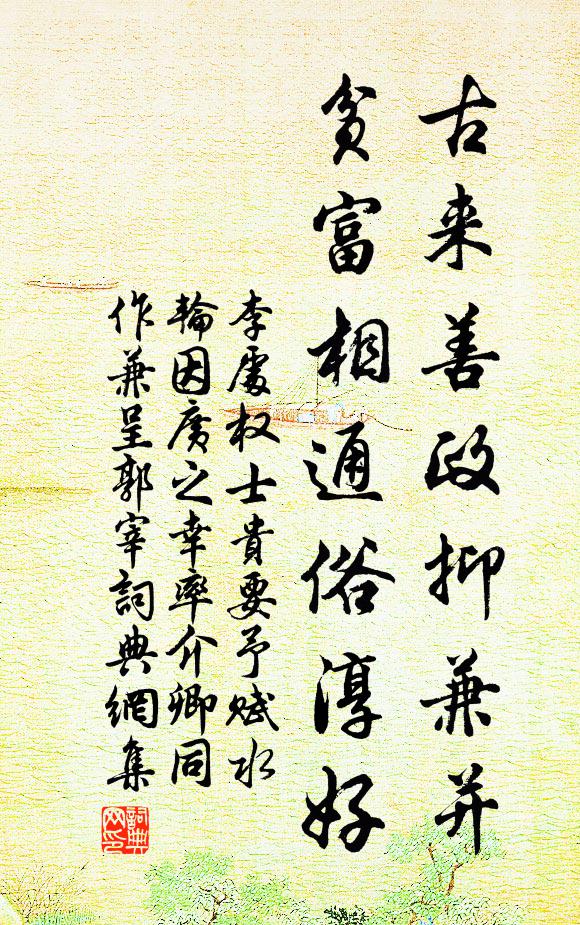 古来善政抑兼并
贫富相通俗淳好
李處权士貴要予赋水
輪因廣之幸率介卿同
作兼呈郭宰詞典網集
詞典网印